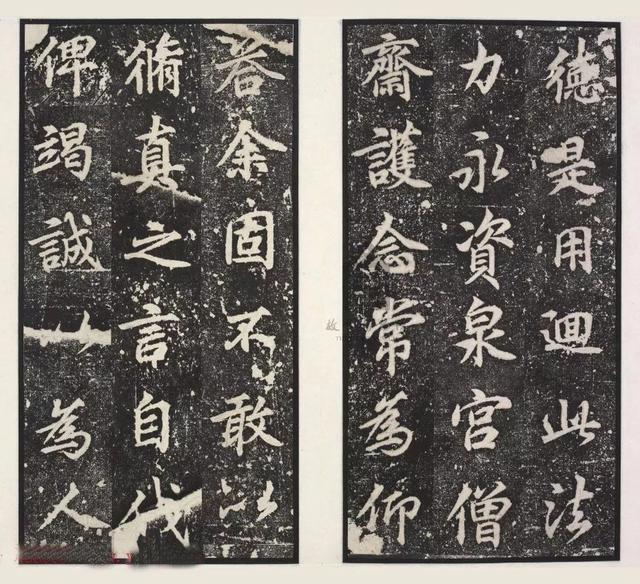 徳是用迴此法
力永資泉宮僧
齋護念常為仰
荅余固不敢以
脩真之言自伐
俾竭誠為人